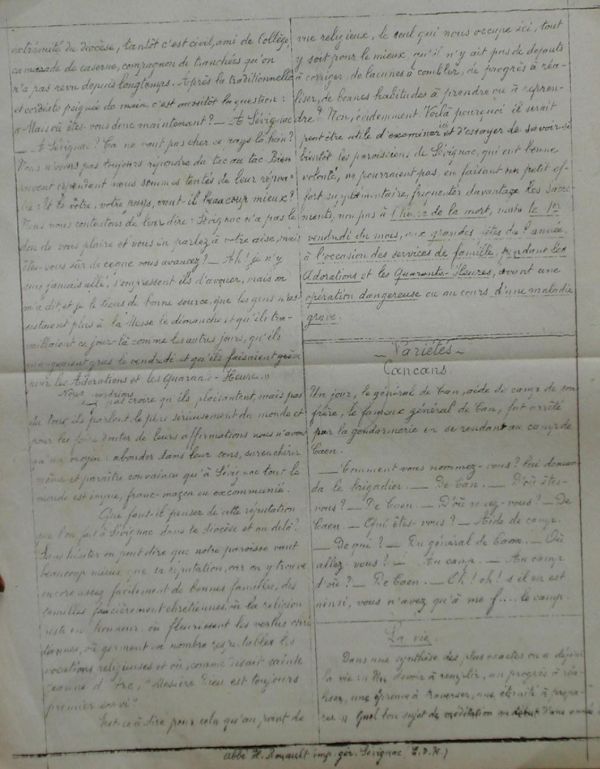 extrémité du diocèse, tantôt c'est civil, ami de Collège,
camarade de caserne, compagnon de tranchées qu'on
n'a pas revu depuis longtemps. Après la traditionnelle
et cordiale poignée de main c'est aussitôt la question:
"Mais où êtes-vous donc maintenant? — A Sévignac
— A Sévignac? Ça ne vaut pas cher ce pays là hein?
Nous n'osons pas toujours répondre du tac au tac. Bien
souvent cependant nous sommes tentés de leur répon-
dre: Et le vôtre, votre pays, vaut-il beaucoup mieux?
Nous nous contentons de leur dire: Sévignac n'a pas le
don de vous plaire et vous en parlez à votre aise, mais
êtes-vous sûr de ce que vous avancez? — Ah! je n'y
suis jamais allé, s'empressent-ils d'avouer, mais on
m'a dit, et je le tiens de bonne source, que les gens n'as-
sistaient plus à la Messe le dimanche et qu'ils tra-
vaillaient ce jour-là comme les autres jours, qu'ils
mangeaient gras le vendredi et qu'ils faisaient grève
pour les Adorations et les Quarante-Heures."
Nous voudrions
croire qu'ils plaisantent, mais pas
du tout, ils parlent le plus sérieusement du monde et
pour les faire douter de leurs affirmations nous n'avons
qu'un moyen: abonder dans leur sens, surenchérir
même et paraître convaincu qu'à Sévignac tout le
monde est impie, franc-maçon ou excommunié.
Que faut-il penser de cette réputation
que l'on fait à Sévignac dans le diocèse et au delà?
Sans hésiter on peut dire que notre paroisse vaut
beaucoup mieux que sa réputation, car on y trouve
encore assez facilement de bonnes familles, des
familles foncièrement chrétiennes, où la religion
reste en honneur, où fleurissent les vertus chré-
tiennes, où germent en nombre respectables les
vocations religieuses et où, comme disait sainte
Jeanne d'Arc, "Messire Dieu est toujours
premier servi".
Est-ce à dire pour cela qu'au point de
vue religieux, le seul qui nous occupe ici, tout
y soit pour le mieux, qu'il n'y ait pas de défauts
à corriger, de lacunes à combler, de progrès à réa-
liser, de bonnes habitudes à prendre ou à repren-
dre? Non, évidemment. Voilà pourquoi il serait
peut-être utile d'examiner et d'essayer de savoir si
bientôt les paroissiens de Sévignac, qui ont bonne
volonté, ne pourraient pas, en faisant un petit ef-
fort supplémentaire, fréquenter davantage les Sacre-
ments, non pas à l'heure de la mort, mais le 1er
vendredi du mois, aux grandes fêtes de l'année,
à l'occasion des services de famille, pendant les
Adorations et les Quarante-Heures, avant une
opération dangereuse ou au cours d'une maladie
grave.
— Variétés —
Cancans
Un jour, le général de Caen, aide de camp de son
frère, le fameux général de Caen, fut arrêté
par la gendarmerie en se rendant au camp de
Caen.
— Comment vous nommez-vous? lui deman-
da le brigadier. — De Caen. — D'où êtes-
vous? — De Caen. — D'où venez-vous? — De
Caen. — Qui êtes-vous? — Aide de camp.
— De qui? — Du général de Caen. — Où
allez-vous? — Au camp. — Au camp
d'où? — De Caen. — Oh! oh! s'il en est
ainsi, vous n'avez qu'à me f.... le camp.
La vie.
Dans une synthèse des plus exactes on a défini
la vie: "Un devoir à remplir, un progrès à réa-
liser, une épreuve à traverser, une éternité à prépa-
rer". Quel bon sujet de méditation au début d'une année
Abbé H. Rouault imp. gér. Sévignac (C.D.N.)